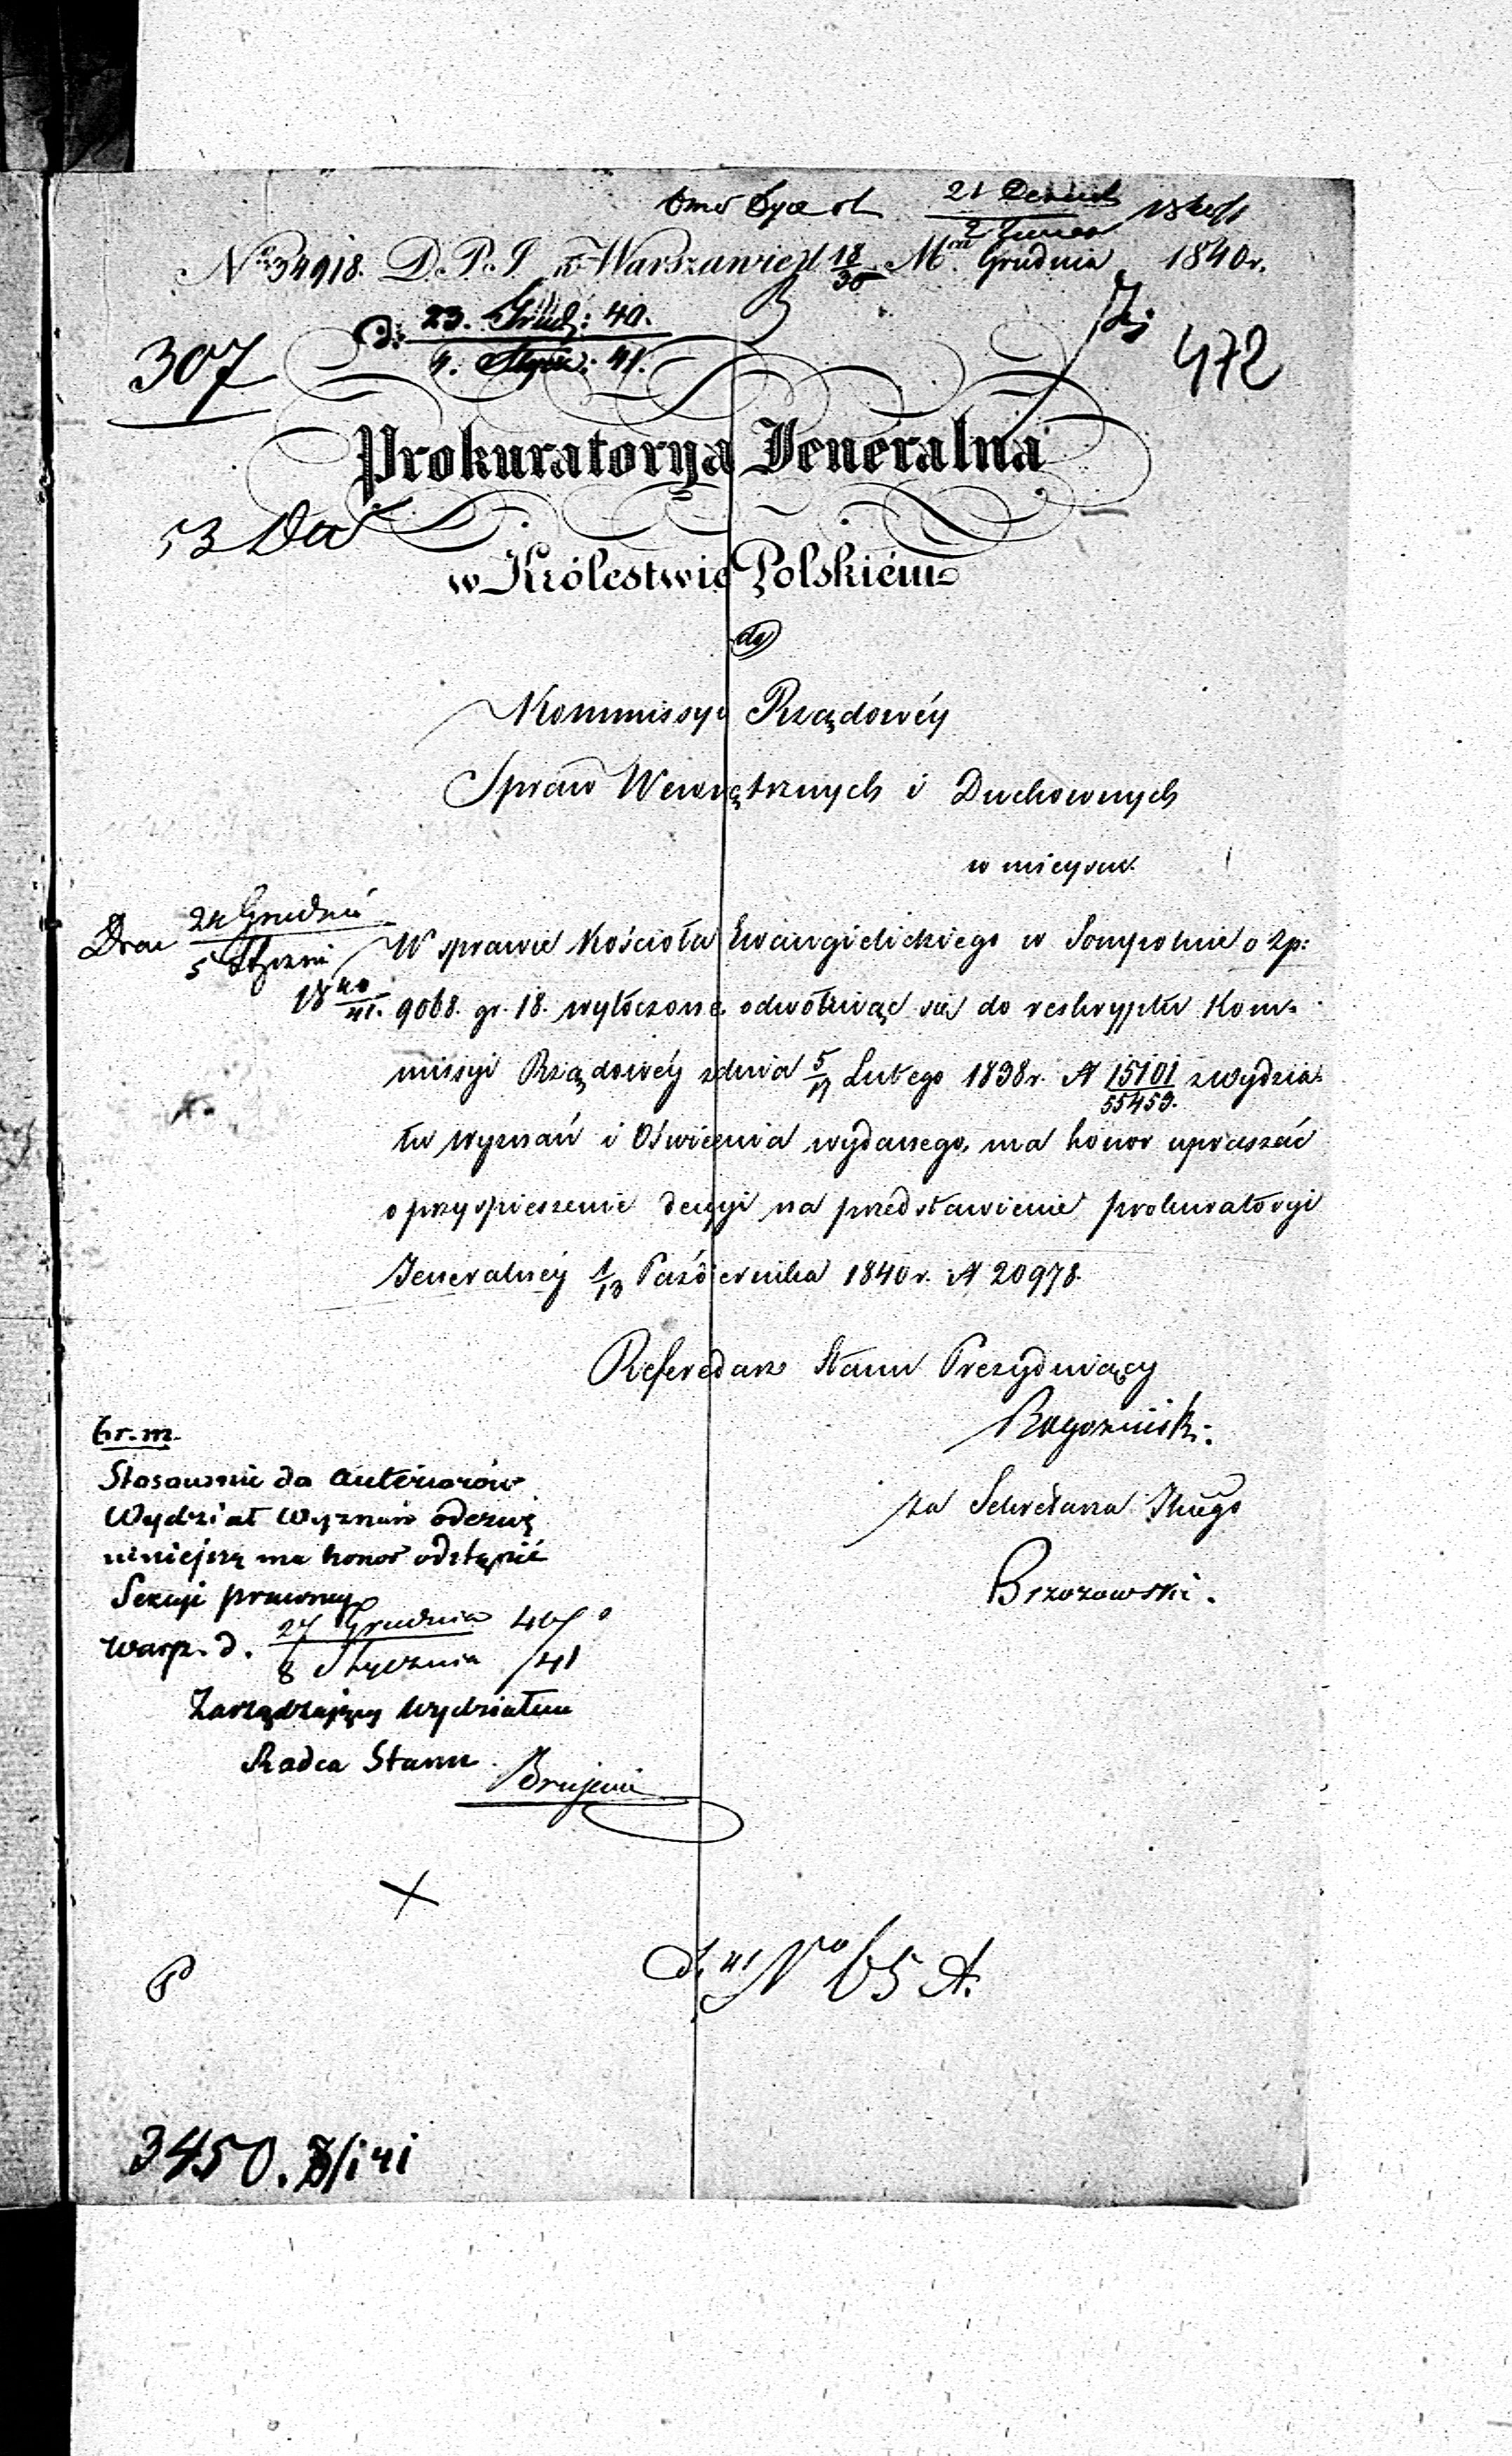 21 Decemb
2
No 34918. D. P. J. w Warszawie d 18/30 Mca Grudnia 1840 r.
d: 23. Grud: 40.
4. Stycz: 41.
307
472
Prokuratorya Jeneralna
53
w Królestwie Polskiém
do
Kommissyi Rządowéy
Spraw Wewnętrznych i Duchownych
w mieyscu.
24 Grudnia
5 Styczni
18 40/41.
W sprawie Kościoła Ewangielickiego w Sompolnie o zp:
9068. gr. 18. wytoczoné odwołuiąc się do reskryptu Kom-
missyi Rządowéy z dnia 5/17 Lutego 1838 r. N 15101/55453. z wydzia-
łu wyznań i Oświecenia wydanego, ma honor upraszać
o przyspieszenie decyzyi na przedstawienie prokuratoryi
Jeneralnéy 1/13 Października 1840 r. N 20978.
Referendarz Stanu Prezyduiący
za Sekretarza Jlnego
Brzozowski.
br. m.
Stosownie do anteriorów
Wydział Wyznań odezwę
niniejszą ma honor odstąpić
Sekcyi prawney
Warsz. d. 27 Grudnia 40
8 Stycznia /41
Zarządzający Wydziałem
Radca Stanu
No 65 A.
3450.